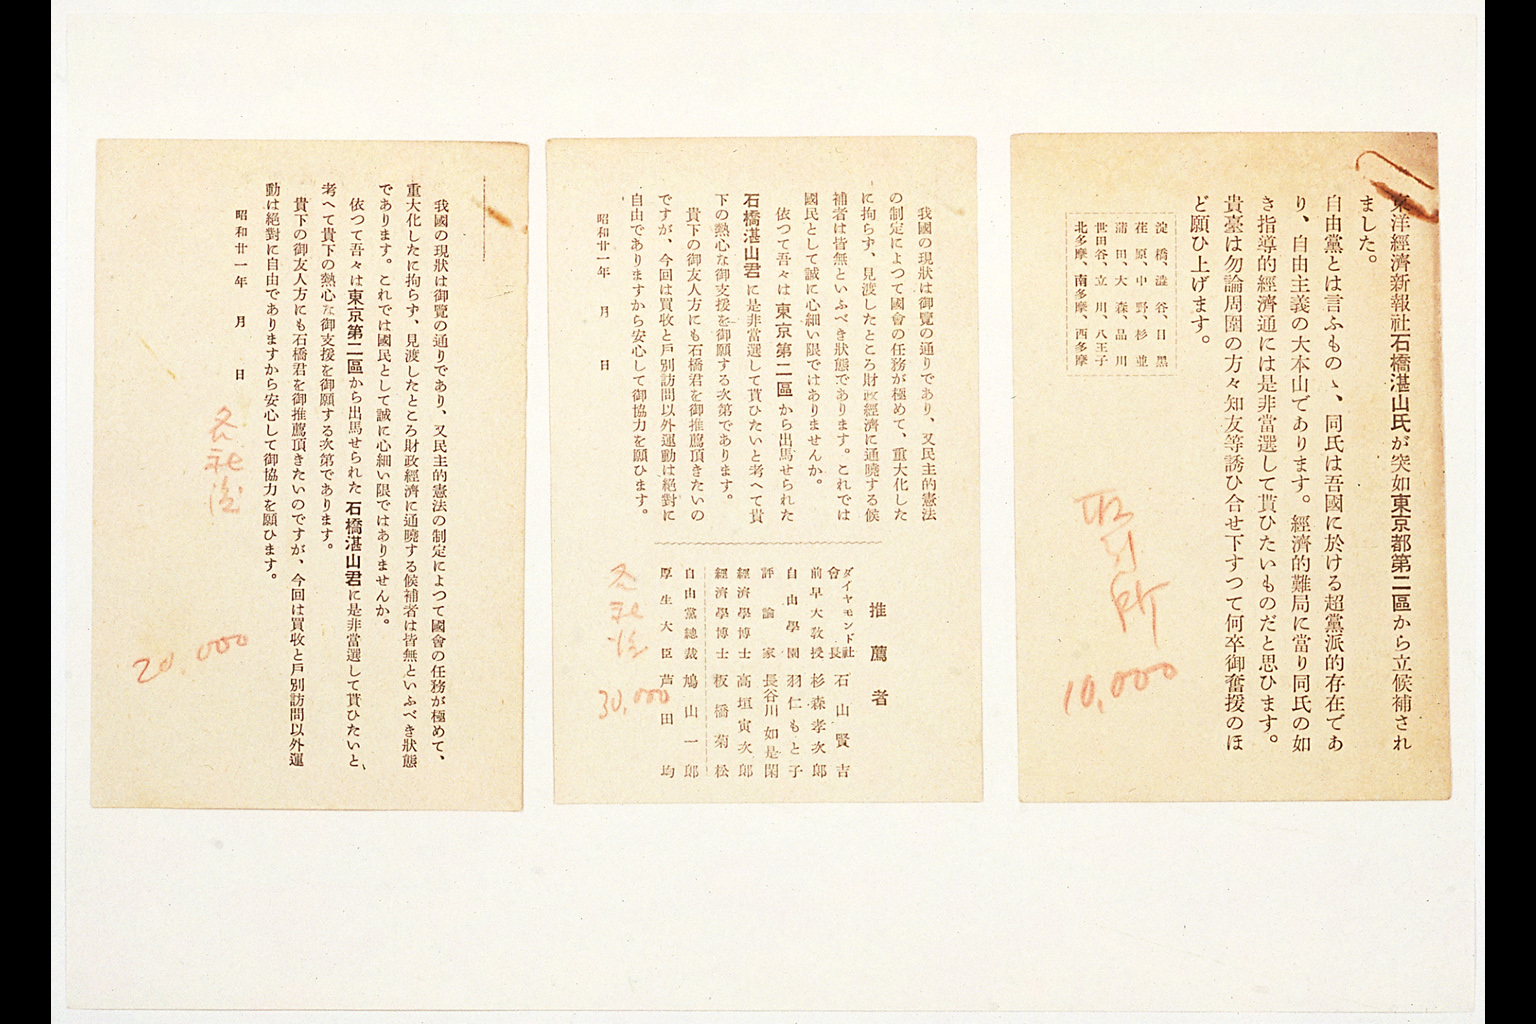 東洋經濟新報社石橋湛山氏が突如東京都第二區から立候補され
ました。
自由黨とは言ふものゝ、同氏は吾國に於ける超黨派的存在であ
り、自由主義の大本山であります。經濟的難局に當り同氏の如
き指導的經濟通には是非當選して貰ひたいものだと思ひます。
貴臺は勿論周圍の方々知友等誘ひ合せ下すつて何卒御奮援のほ
ど願ひ上げます。
淀橋、澁谷、目黑
荏原、中野、杉並
蒲田、大森、品川
世田谷、立川、八王子
北多摩、南多摩、西多摩
10,000
我國の現狀は御覽の通りであり、又民主的憲法
の制定によつて國會の任務が極めて、重大化した
に拘らず、見渡したところ財政經濟に通曉する候
補者は皆無といふべき狀態であります。これでは
國民として誠に心細い限ではありませんか。
依つて吾々は東京第二區から出馬せられた
石橋湛山君に是非當選して貰ひたいと考へて貴
下の熱心な御支援を御願する次第であります。
貴下の御友人方にも石橋君を御推薦頂きたいの
ですが、今回は買收と戶別訪問以外運動は絕對に
自由でありますから安心して御協力を願ひます。
昭和廿一年 月 日
推薦者
ダイヤモンド社會長 石山賢吉
前早大敎授 杉森孝次郞
自由學園 羽仁もと子
評論家 長谷川如是閑
經濟學博士 高垣寅次郞
經濟學博士 板橋菊松
自由黨總裁 鳩山一郞
厚生大臣 芦田均
30,000
我國の現狀は御覽の通りであり、又民主的憲法の制定によつて國會の任務が極めて、
重大化したに拘らず、見渡したところ財政經濟に通曉する候補者は皆無といふべき狀態
であります。これでは國民として誠に心細い限ではありませんか。
依つて吾々は東京第二區から出馬せられた石橋湛山君に是非當選して貰ひたいと、
考へて貴下の熱心な御支援を御願する次第であります。
貴下の御友人方にも石橋君を御推薦頂きたいのですが、今回は買收と戶別訪問以外運
動は絕對に自由でありますから安心して御協力を願ひます。
昭和廿一年 月 日
20,000